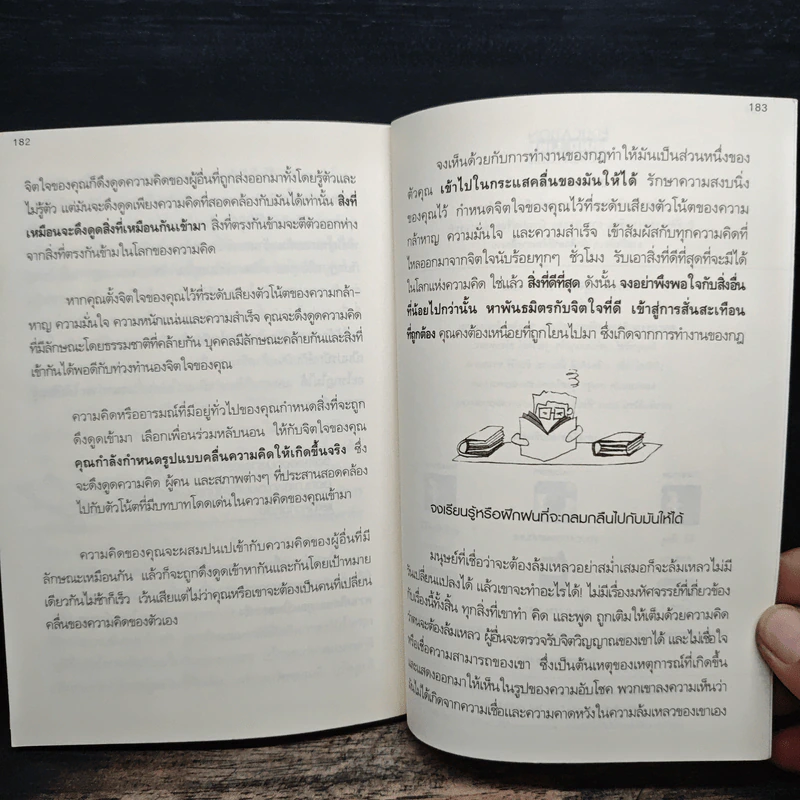 182
จิตใจของคุณก็ดึงดูดความคิดของผู้อื่นที่ถูกส่งออกมาทั้งโดยรู้ตัวและ
ไม่รู้ตัว แต่มันจะดึงดูดเพียงความคิดที่สอดคล้องกับมันได้เท่านั้น สิ่งที่
เหมือนจะดึงดูดสิ่งที่เหมือนกันเข้ามา สิ่งที่ตรงกันข้ามจะตีตัวออกห่าง
จากสิ่งที่ตรงกันข้ามในโลกของความคิด
หากคุณตั้งจิตใจของคุณไว้ที่ระดับเสียงตัวโน้ตของความกล้า-
หาญ ความมั่นใจ ความหนักแน่นและความสำเร็จ คุณจะดึงดูดความคิด
ที่มีลักษณะโดยธรรมชาติที่คล้ายกัน บุคคลมีลักษณะคล้ายกันและสิ่งที่
เข้ากันได้พอดีกับท่วงทำนองจิตใจของคุณ
ความคิดหรืออารมณ์ที่มีอยู่ทั่วไปของคุณกำหนดสิ่งที่จะถูก
ดึงดูดเข้ามา เลือกเพื่อนร่วมหลับนอน ให้กับจิตใจของคุณ
คุณกำลังกำหนดรูปแบบคลื่นความคิดให้เกิดขึ้นจริง ซึ่ง
จะดึงดูดความคิด ผู้คน และสภาพต่างๆ ที่ประสานสอดคล้อง
ไปกับตัวโน้ตที่มีบทบาทโดดเด่นในความคิดของคุณเข้ามา
ความคิดของคุณจะผสมปนเปเข้ากับความคิดของผู้อื่นที่มี
ลักษณะเหมือนกัน แล้วก็จะถูกดึงดูดเข้าหากันและกันโดยเป้าหมาย
เดียวกันไม่ช้าก็เร็ว เว้นเสียแต่ไม่ว่าคุณหรือเขาจะต้องเป็นคนที่เปลี่ยน
คลื่นของความคิดของตัวเอง
183
จงเห็นด้วยกับการทำงานของกฎทำให้มันเป็นส่วนหนึ่งของ
ตัวคุณ เข้าไปในกระแสคลื่นของมันให้ได้ รักษาความสงบนิ่ง
ของคุณไว้ กำหนดจิตใจของคุณไว้ที่ระดับเสียงตัวโน้ตของความ
กล้าหาญ ความมั่นใจ และความสำเร็จ เข้าสัมผัสกับทุกความคิดที่
ไหลออกมาจากจิตใจนับร้อยทุกๆ ชั่วโมง รับเอาสิ่งที่ดีที่สุดที่จะมีได้
ในโลกแห่งความคิด ใช่แล้ว สิ่งที่ดีที่สุด ดังนั้น จงอย่าพึงพอใจกับสิ่งอื่น
ที่น้อยไปกว่านั้น หาพันธมิตรกับจิตใจที่ดี เข้าสู่การสั่นสะเทือน
ที่ถูกต้อง คุณคงต้องเหนื่อยที่ถูกโยนไปมา ซึ่งเกิดจากการทำงานของกฎ
จงเรียนรู้หรือฝึกฝนที่จะกลมกลืนไปกับมันให้ได้
มนุษย์ที่เชื่อว่าจะต้องล้มเหลวอย่างสม่ำเสมอก็จะล้มเหลวไม่มี
วันเปลี่ยนแปลงได้ แล้วเขาจะทำอะไรได้! ไม่มีเรื่องมหัศจรรย์ที่เกี่ยวข้อง
กับเรื่องนี้ทั้งสิ้น ทุกสิ่งที่เขาทำ คิด และพูด ถูกเติมให้เต็มด้วยความคิด
ว่าตนจะต้องล้มเหลว ผู้อื่นจะตรวจรับจิตวิญญาณของเขาได้ และไม่เชื่อใจ
หรือเชื่อความสามารถของเขา ซึ่งเป็นต้นเหตุของเหตุการณ์ที่เกิดขึ้น
และแสดงออกมาให้เห็นในรูปของความอับโชค พวกเขาลงความเห็นว่า
ไม่ได้เกิดจากความเชื่อและความคาดหวังในความล้มเหลวของเขาเอง